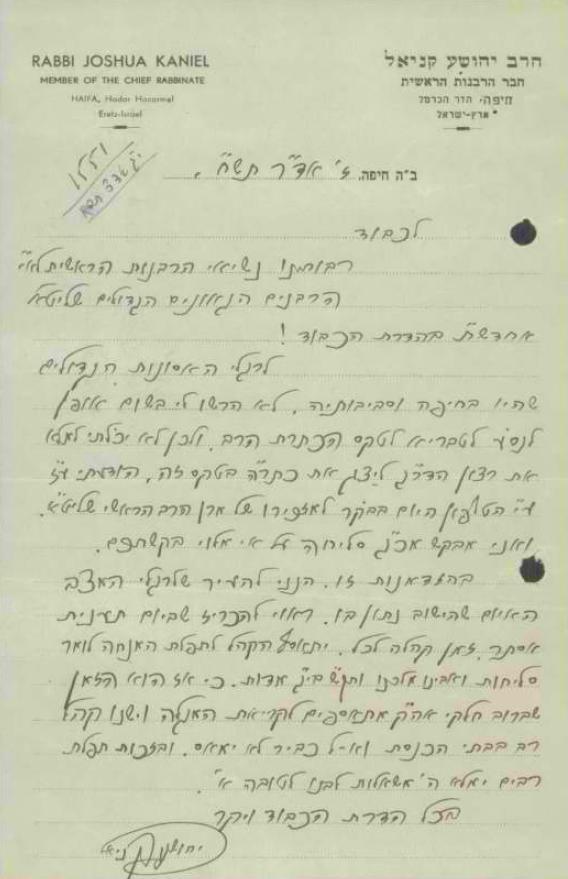 RABBI JOSHUA KANIEL
MEMBER OF THE CHIEF RABBINATE
HAIFA, Hadar Hacarmel
Eretz-Israel
הרב יהושע קניאל
חבר הרבנות הראשית
חיפה, הדר הכרמל
ארץ-ישראל
1551
ב"ה חיפה, ז' אד"ר תש"ח.
לכבוד
רבותינו נשיאי הרבנות הראשית לא"י
הרבנים הגאונים הגדולים שליט"א
אחדשה"ט בהדרת הכבוד!
לרגלי האסונות הגדולים
שהיו בחיפה וסביבותיה, לא הרשו לי בשום אופן
לנסע לטבריא לטקס הכתרת הרב, ולכן לא יכלתי למלא
את רצון הדר"ג לייצג את כתר"ה בטקס זה, הודעתי ע"ז
ע"י הטלפון היום בבקר למזכירו של מרן הרב הראשי שליט"א.
ואני מבקש מכ"ג סליחה על אי מלוי בקשתם.
בהזדמנות זו, הנני להעיר שלרגלי המצב
האיום שהישוב נתון בו, ראוי להכריז שביום תענית
אסתר, זמן קהלה לכל, יתאסף הקהל לתפלת המנחה לומר
סליחות ואבינו מלכנו י"ג מדות, כי אז הוא הזמן
שברוב חלקי אה"ק מתאספים לקריאת המגלה וישנו קהל
רב בבתי הכנסת וא-ל כביר לא ימאס, ובזכות תפלת
רבים ימלא ה' משאלות לבנו לטובה א'.
בכל הדרת הכבוד ויקר
יהושע קניאל